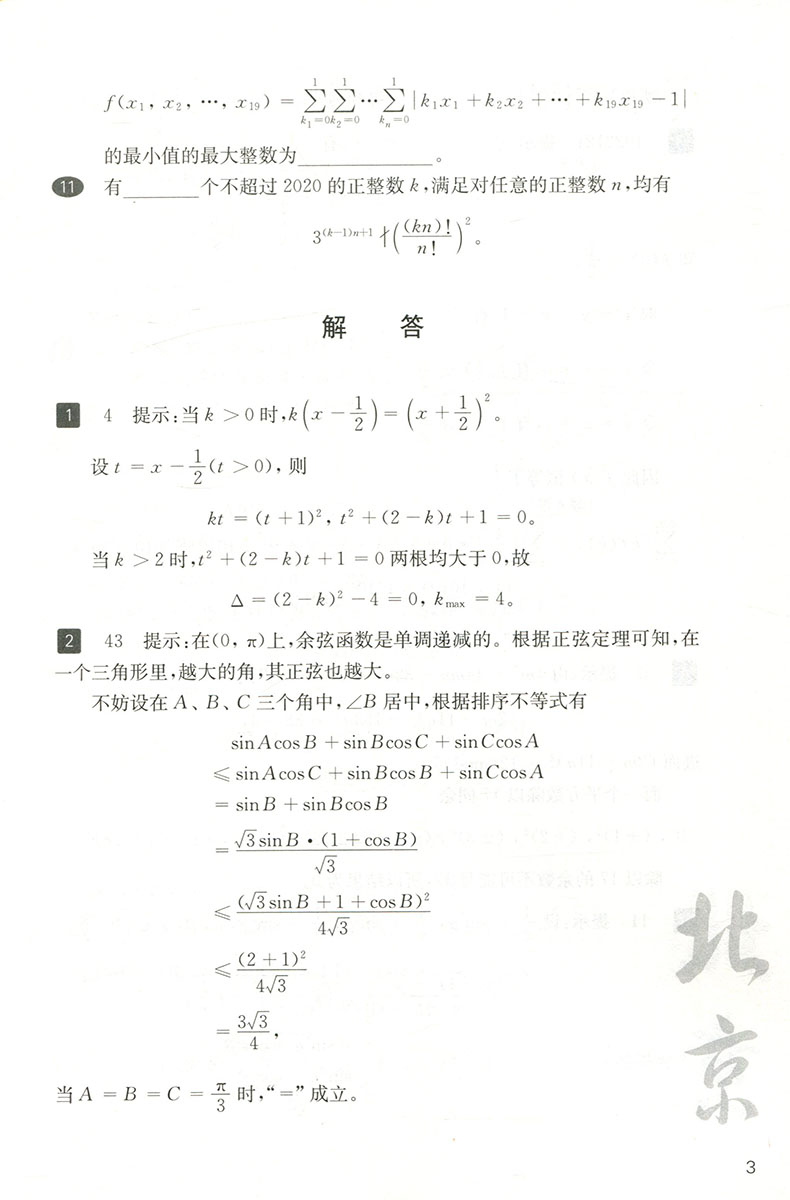 f(x₁, x₂, …, x₁₉) = ∑_{k₁=0}^{1} ∑_{k₂=0}^{1} … ∑_{kₙ=0}^{1} |k₁x₁ + k₂x₂ + … + k₁₉x₁₉ − 1|
的最小值的最大整数为______________。
11 有________个不超过 2020 的正整数 k,满足对任意的正整数 n,均有
3^{(k−1)n+1} ∤ ((kn)!/n!)²。
解 答
1 4 提示:当 k > 0 时,k(x − 1/2) = (x + 1/2)²。
设 t = x − 1/2 (t > 0), 则
kt = (t + 1)², t² + (2 − k)t + 1 = 0。
当 k > 2 时,t² + (2 − k)t + 1 = 0 两根均大于 0,故
Δ = (2 − k)² − 4 = 0, k_max = 4。
2 43 提示:在(0, π)上,余弦函数是单调递减的。根据正弦定理可知,在
一个三角形里,越大的角,其正弦也越大。
不妨设在 A、B、C 三个角中,∠B 居中,根据排序不等式有
sin A cos B + sin B cos C + sin C cos A
⩽ sin A cos C + sin B cos B + sin C cos A
= sin B + sin B cos B
= √3 sin B · (1 + cos B)/√3
⩽ (√3 sin B + 1 + cos B)²/4√3
⩽ (2 + 1)²/4√3
= 3√3/4,
当 A = B = C = π/3 时,“=”成立。
北
京
3